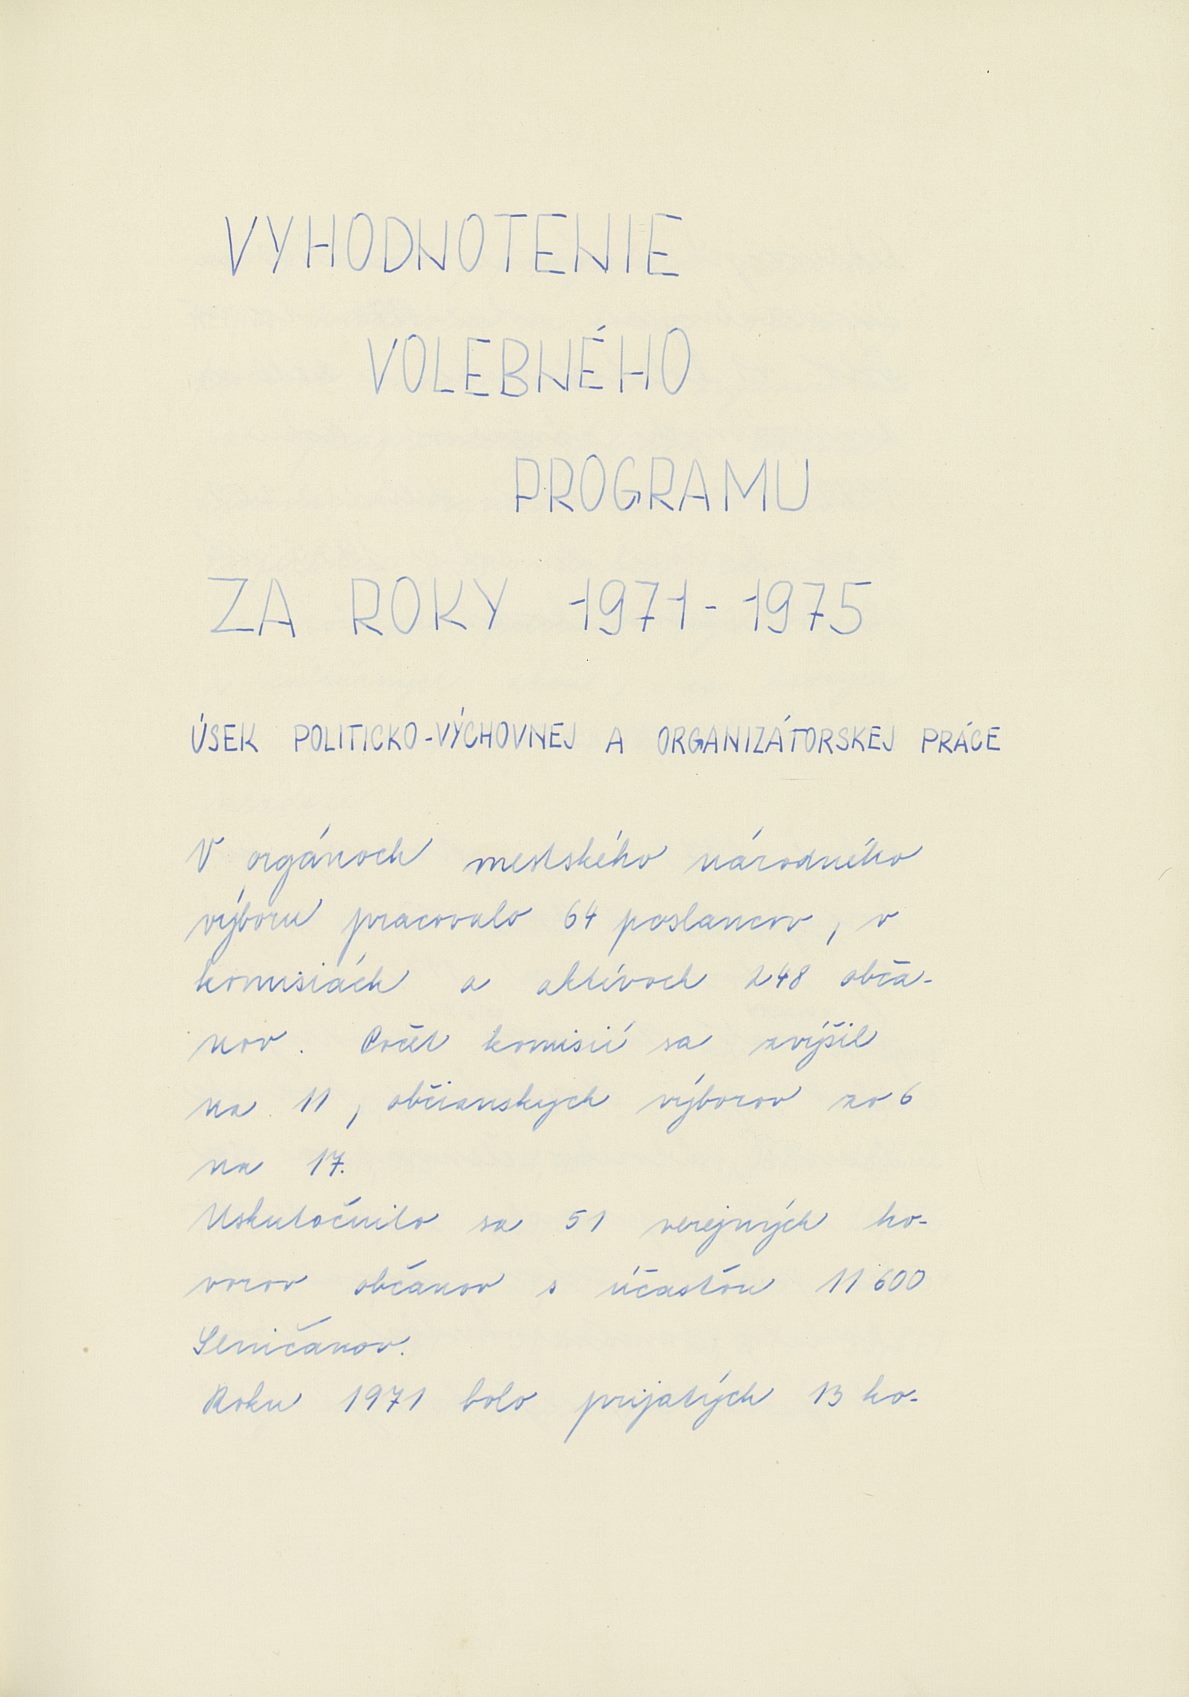 VYHODNOTENIE
VOLEBNÉHO
PROGRAMU
ZA ROKY 1971-1975
ÚSEK POLITICKO-VÝCHOVNEJ A ORGANIZÁTORSKEJ PRÁCE
V orgánoch mestského národného
výboru pracovalo 64 poslancov, v
komisiách a aktívoch 248 obča-
nov. Počet komisií sa zvýšil
na 11, občianskych výborov zo 6
na 17.
Uskutočnilo sa 51 verejných ho-
vorov občanov s účasťou 11 600
Seničanov.
Roku 1971 bolo prijatých 13 ho-